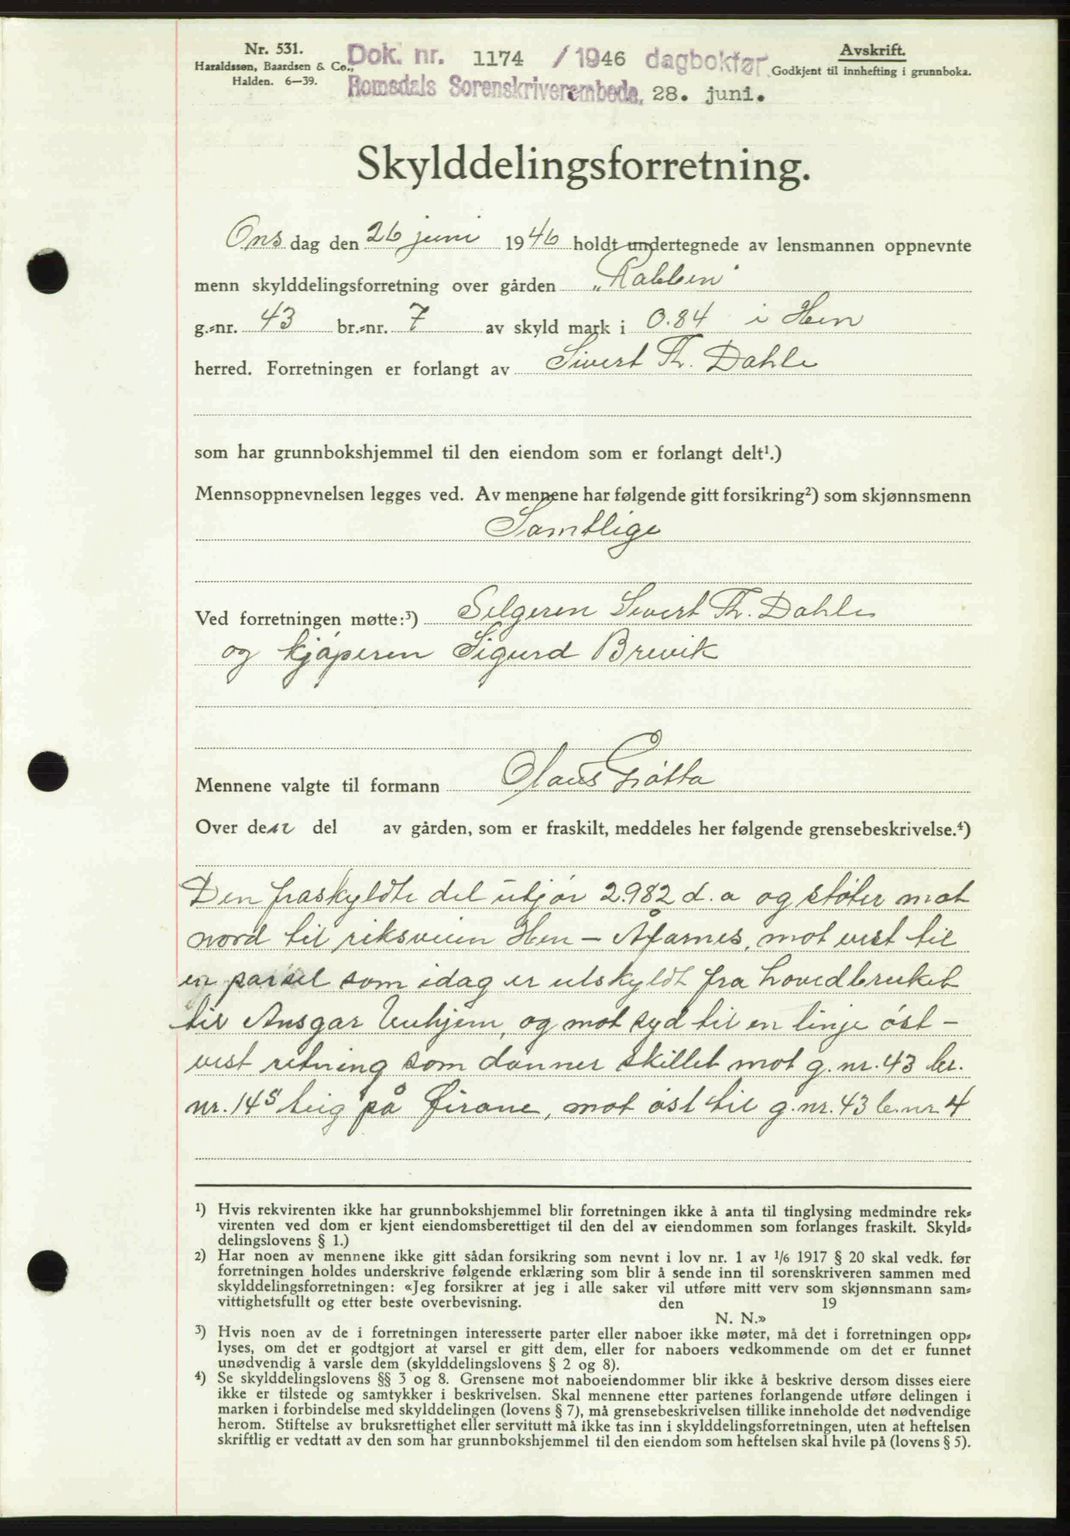 Nr. 531.
Haraldssøn, Baardsen & Co.,
Halden. 6—39.
Dok. nr. 1174 /1946 dagbokført
Romsdals Sorenskriverembede, 28. juni.
Avskrift.
Godkjent til innhefting i grunnboka.
Skylddelingsforretning.
Ons dag den 26 juni 1946 holdt undertegnede av lensmannen oppnevnte
menn skylddelingsforretning over gården „Rabben"
g.-nr. 43 br.-nr. 7 av skyld mark i 0.84 i Hen
herred. Forretningen er forlangt av Sivert Th. Dahle
som har grunnbokshjemmel til den eiendom som er forlangt delt¹.)
Mennsoppnevnelsen legges ved. Av mennene har følgende gitt forsikring²) som skjønnsmenn
Samtlige
Ved forretningen møtte:³) Selgeren Sivert Th. Dahle
og kjøperen Sigurd Brevik
Mennene valgte til formann Olaus Grøtta
Over den del av gården, som er fraskilt, meddeles her følgende grensebeskrivelse.⁴)
Den fraskyldte del utjør 2.982 d.a og støter mot
nord til riksveien Hen – Åfarnes, mot vest til
en parsel som idag er utskyldt fra hovedbruket
til Ansgar Venhjem, og mot syd til en linje øst –
vest retning som danner skillet mot g.nr. 43 br.
nr. 14s teig på Øirane, mot øst til g.nr. 43 b.nr 4
¹) Hvis rekvirenten ikke har grunnbokshjemmel blir forretningen ikke å anta til tinglysing medmindre rek-
virenten ved dom er kjent eiendomsberettiget til den del av eiendommen som forlanges fraskilt. Skyld-
delingslovens § 1.)
²) Har noen av mennene ikke gitt sådan forsikring som nevnt i lov nr. 1 av ¹/6 1917 § 20 skal vedk. før
forretningen holdes underskrive følgende erklæring som blir å sende inn til sorenskriveren sammen med
skylddelingsforretningen: «Jeg forsikrer at jeg i alle saker vil utføre mitt verv som skjønnsmann sam-
vittighetsfullt og etter beste overbevisning. den 19
N. N.»
³) Hvis noen av de i forretningen interesserte parter eller naboer ikke møter, må det i forretningen opp-
lyses, om det er godtgjort at varsel er gitt dem, eller for naboers vedkommende om det er funnet
unødvendig å varsle dem (skylddelingslovens § 2 og 8).
⁴) Se skylddelingslovens §§ 3 og 8. Grensene mot naboeiendommer blir ikke å beskrive dersom disses eiere
ikke er tilstede og samtykker i beskrivelsen. Skal mennene etter partenes forlangende utføre delingen i
marken i forbindelse med skylddelingen (lovens § 7), må grensebeskrivelsen tillike inneholde det nødvendige
herom. Stiftelse av bruksrettighet eller servitutt må ikke tas inn i skylddelingsforretningen, uten at heftelsen
skriftlig er vedtatt av den som har grunnbokshjemmel til den eiendom som heftelsen skal hvile på (lovens § 5).